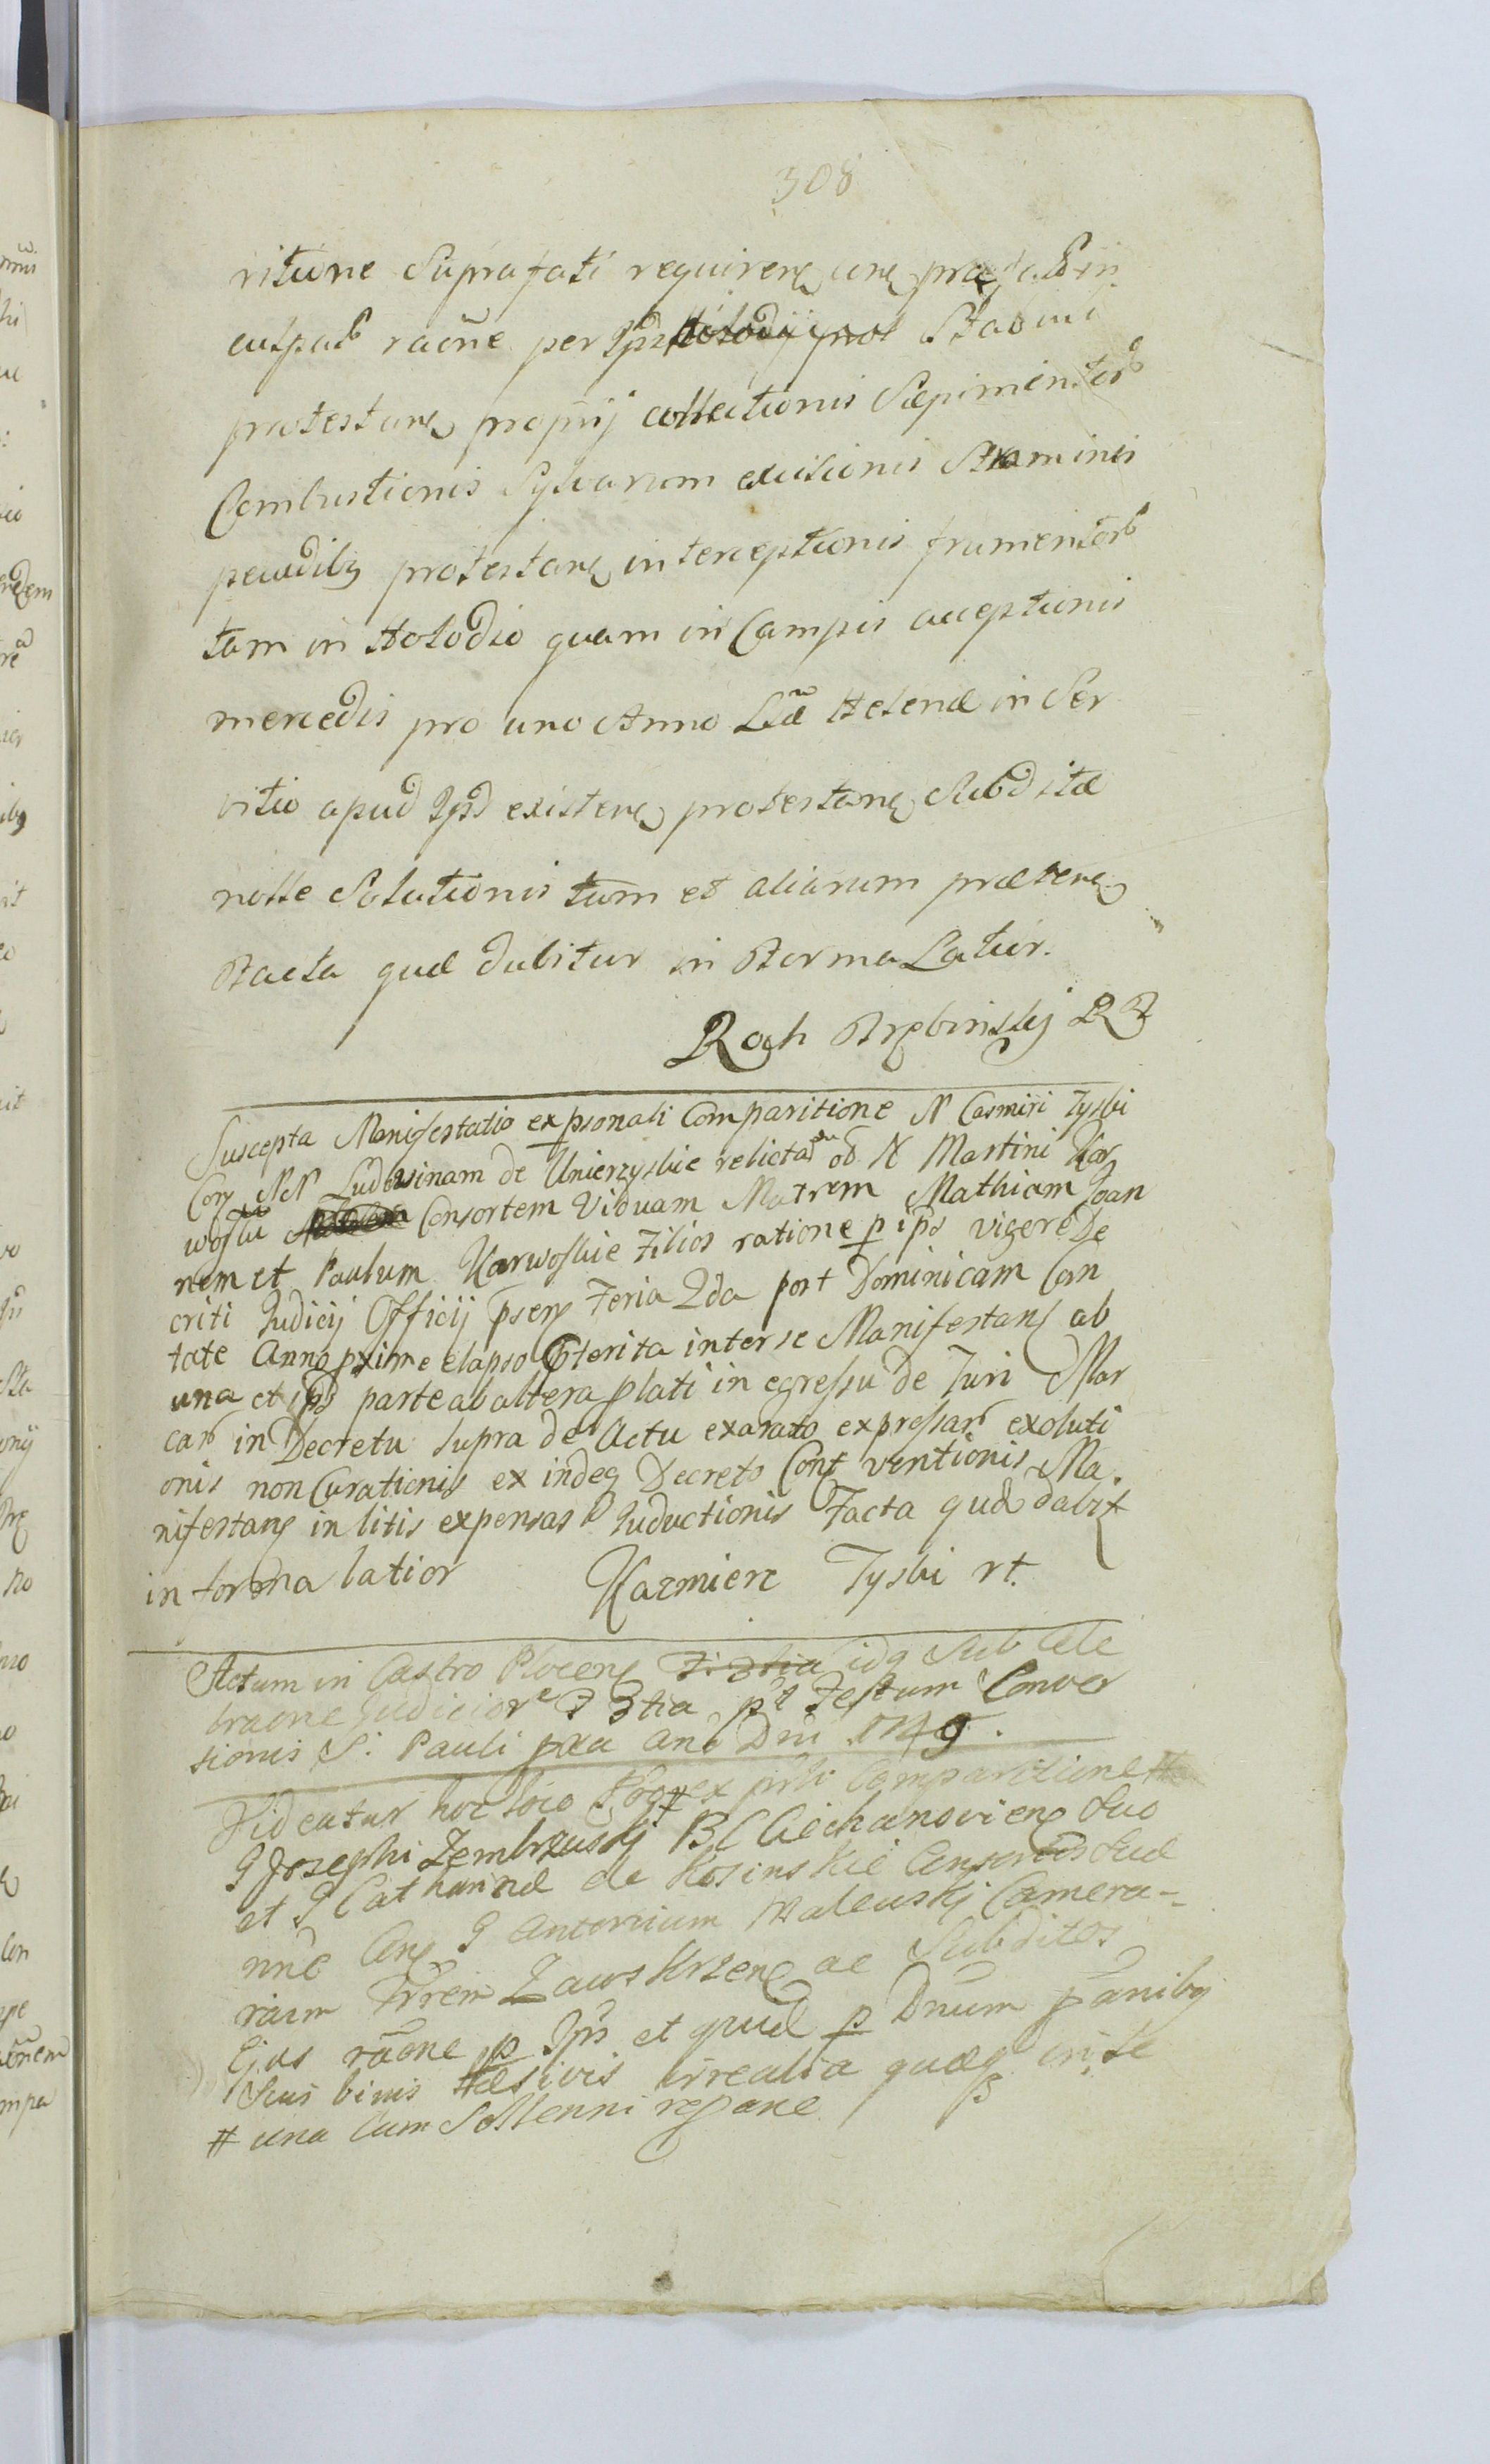 308
ritione Suprafati requiren une
culpab raóne per Ipz Holodij Stabuli
protestane proprij collectionis Sepimentorb
Combustionis Sylvarum excisionis Straminis
pecudibg protestane interceptionis frumentorb
tam in Holodio quam in Campis acceptionis
mercedis pro uno Anno Lræ Helenæ in Ser
vitio apud Ipd existen protestane Subditæ
nolle Solutionis tum et aliarum præten
Facta quæ dabitur in Forma Latior.
Roch Trębinskj
Suscepta Manifestatio ex psonali Comparitione N Casmiri Tyski
Con NN Ludovinam de Unierzyskie relictam ol N Martini Kar
woski Consortem Viduam Matrem Mathiam Joan
nem et Paulum Karwoskie Filios ratione p ipos vigore De
criti Iudicij Officij psen Feria 2da post Dominicam Can
tate Anno pxime elapso pterita inter se Manifestans ab
una et ipos parte ab altera plati in egressu de Juri Mar
car in Decretu Supra de Actu exarato expressar exoluti
onis non Curationis ex indeq Decreto Cont ventionis Ma.
nifestans in litis expensas Inductionis Facta quæ dabit
in forma latior Kazmierz Tyski rt.
Actum in Castro Plocen F: 3tia idq Sub Cele
braone Judicior F 3tia pt Festum Conver
sionis S. Pauli pxa Ano Dni 1749.
Videatur hoc loco # ex prli Comparitione
G Josephi Zembrzuskj B C Ciechanovien Suo
et G Catharinæ de Kosinskie Consortis Suæ
nné Con G Antonium Walewskj Camera-
rium Trrem Zawskrzen ac Subditos
Ejus raóne p Ips et quæ p Dnum paribg
Suis binis Hæsivis irrealia quæq inte
# una Cum Sollenni repone